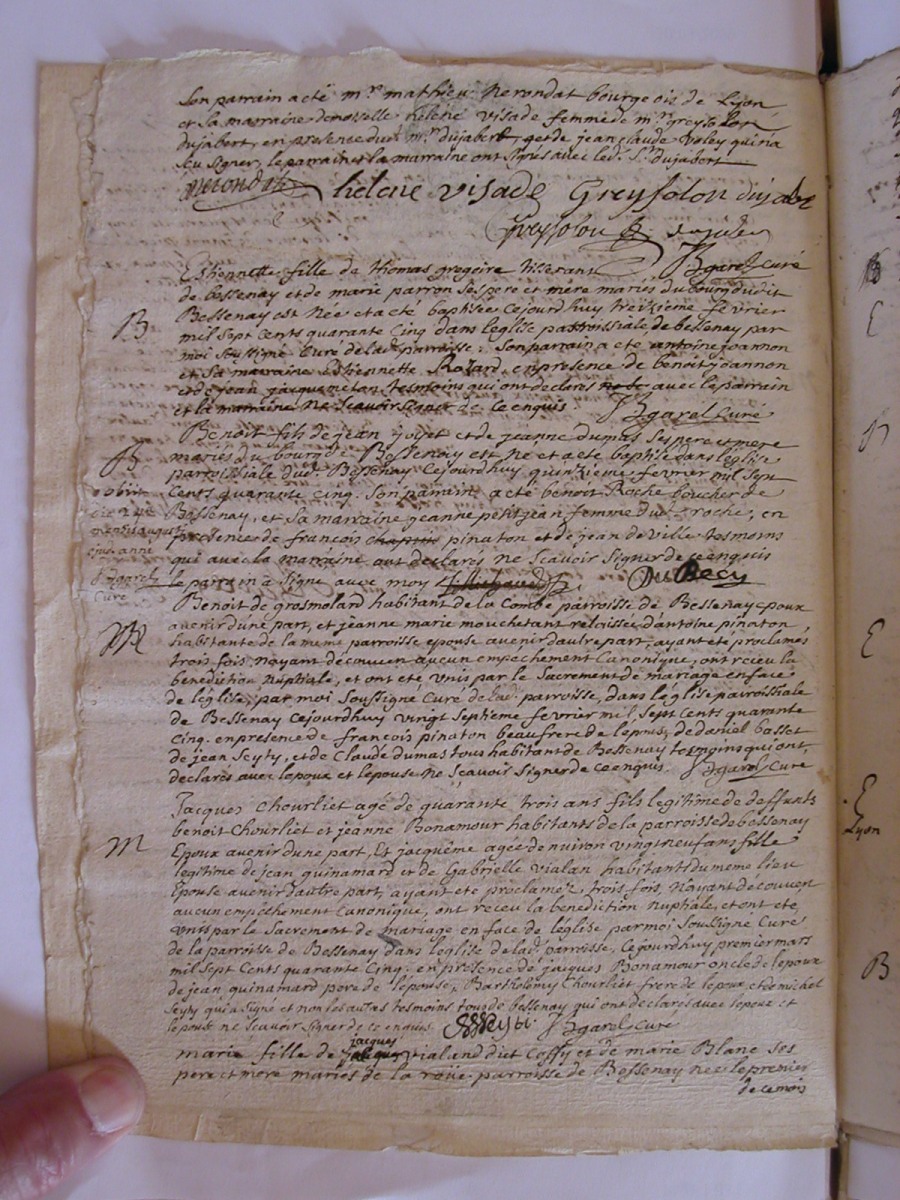 Son parrain a eté mr mathieu Nerondat bourgeois de Lyon
et Sa marraine demoiselle helene visade femme de mr greysolon
dujabert, en presence dud. mr dujabert, et de jean claude voley qui n'a
sçu signer, le parrain et la marraine ont signés avec led. Sr dujabert
Nerondat helene visade Greysolon dujabe
Greysolon
JBgarel Curé
Ethiennette fille de thomas gregoire tisserant
de bessenay et de marie parron ses pere et mere maries du bourg dudit
B
Bessenay est née et a eté baptisée cejourdhuy treizieme fevrier
mil sept cents quarante cinq dans leglise parroissiale de bessenay par
moi soussigné Curé de lad. parroisse. Son parrain a eté antoine joannon
et sa maraine Ethiennette Razard, en presence de benoit joannon
et de jean jacquemetan tesmoins qui ont declarés avec le parrain
et la marraine ne scavoir signer de ce enquis. JBgarel Curé
Benoit fils de jean joyet et de jeanne dumas ses pere et mere
B
mariés du bourg de Bessenay est né et a eté baptisé dans leglise
parroissiale dud. Bessenay cejourdhuy quinzieme fevrier mil sept
obiit
cents quarante cinq. Son parrain a eté benoit Roche boucher de
die 24e
Bessenay, et sa marraine jeanne petitjean femme dud. roche, en
mensis august
presence de francois pinaton et de jean deville tesmoins
ejusd. anni
qui avec la marraine ont declarés ne scavoir signer de ce enquis
JBgarel
Curé
le parrain a signé avec moy Du Becy
Benoit de grosmolard habitant de la Combe parroisse de Bessenay epoux
avenir dune part, et jeanne marie mouchetant relaissée dantoine pinaton
M
habitante de la meme parroisse epouse avenir dautre part, ayant eté proclamés
trois fois, nayant decouvert aucun empechement Canonique, ont recieu la
benediction nuptiale, et ont eté unis par le Sacrement de mariage en face
de leglise, par moi Soussigné Curé de lad. parroisse, dans leglise parroissiale
de Bessenay cejourdhuy vingt septieme fevrier mil sept cents quarante
cinq. en presence de francois pinaton beaufrere de lepous, de daniel basset
de jean Seyty, et de Claude dumas tous habitant de Bessenay tesmoins qui ont
declarés avec lepoux et lepouse ne scavoir signer de ce enquis. JBgarel Curé
Jacques Chourliet agé de quarante trois ans fils legitime de deffunts
benoit Chourliet et jeanne Bonamour habitants de la parroisse de bessenay
M
Epoux avenir dune part, Et jacquême agée denviron vingt neuf ans fille
legitime de jean quinamard et de Gabrielle vialan habitants du meme lieu
Epouse avenir dautre part, ayant eté proclamez trois fois. Nayant découvert
aucun empêchement Canonique, ont receu la benediction nuptiale, et ont eté
unis par le Sacrement de mariage en face de léglise par moi Soussigné Curé
de la parroisse de Bessenay dans leglise de lad. parroisse, Cejourdhuy premier mars
mil Sept Cents quarante Cinq. en presence de jacques Bonamour oncle de lepoux
de jean quinamard pere de lépouse, Barthelemy Chourliet frere de lepoux, et de michel
Seyty qui a signé et non les autres tesmoins tous de bessenay qui ont declarés avec lepoux et
lepouse ne scavoir signer de ce enquis JBgarel Curé
jacques
marie fille de vialand dict Coffy et de marie Blanc ses
pere et mere mariés de la roüe parroisse de Bessenay née le premier
de ce mois
B
E
E
E
Lyon
B